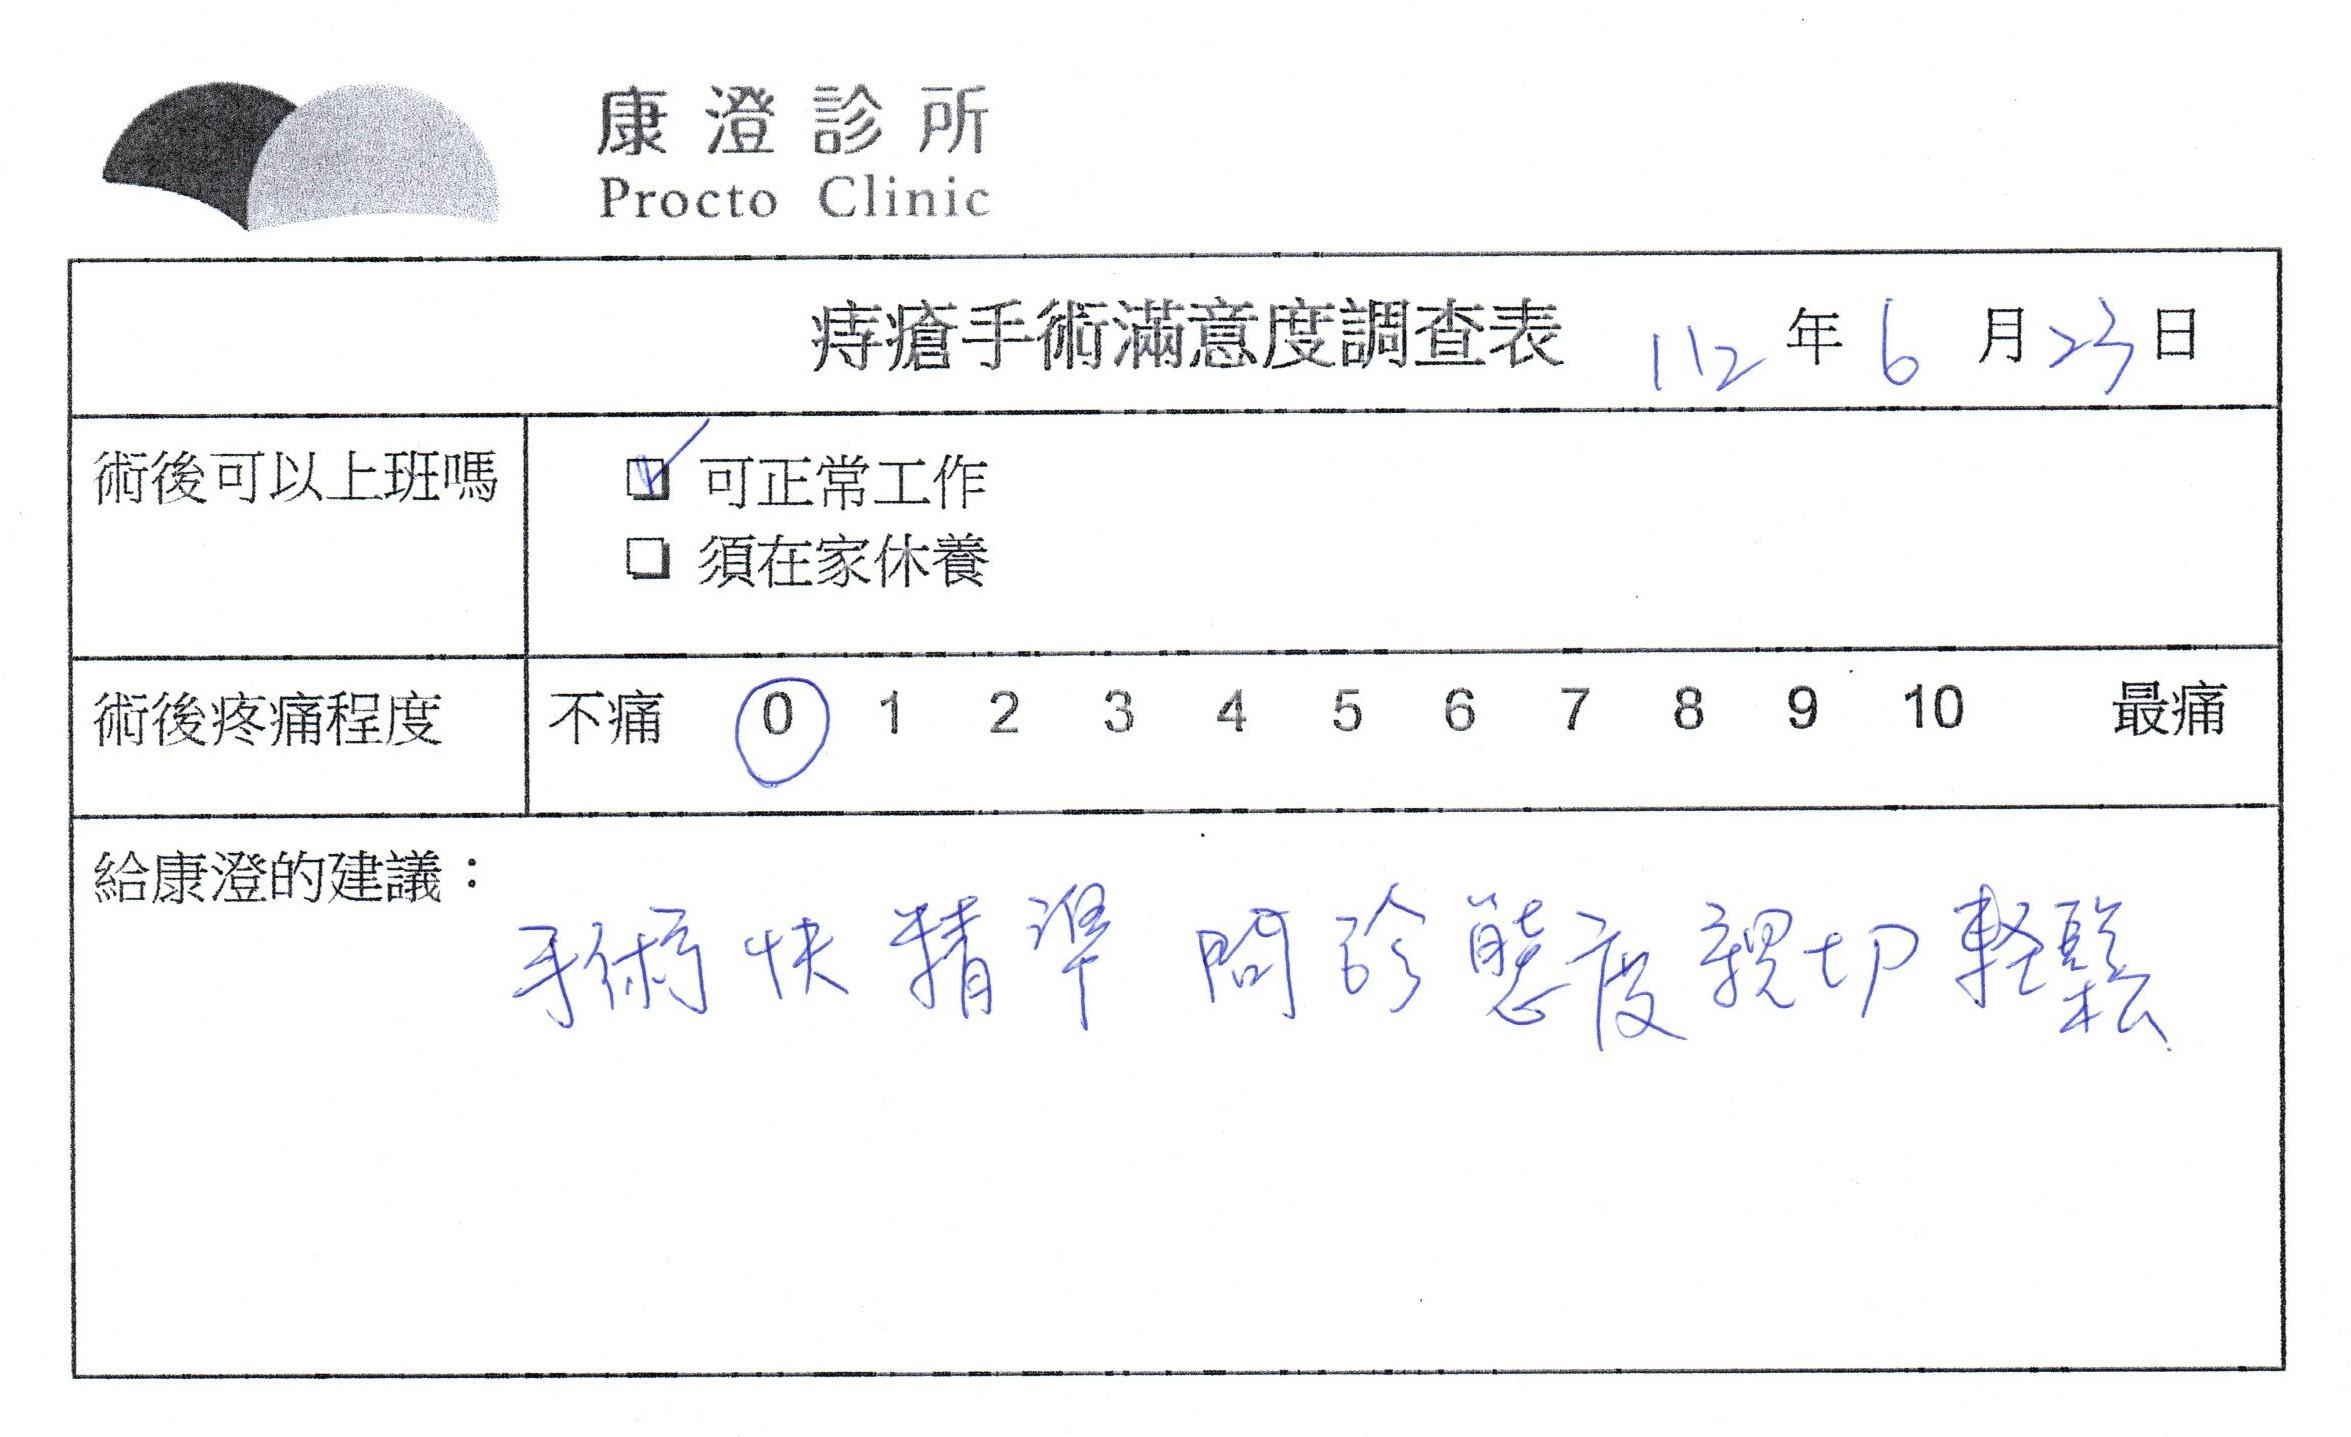 康澄診所
Procto Clinic
痔瘡手術滿意度調查表 112年6月23日
術後可以上班嗎 可正常工作
須在家休養
術後疼痛程度 不痛 0 1 2 3 4 5 6 7 8 9 10 最痛
給康澄的建議：
手術快精準 問診態度親切輕鬆